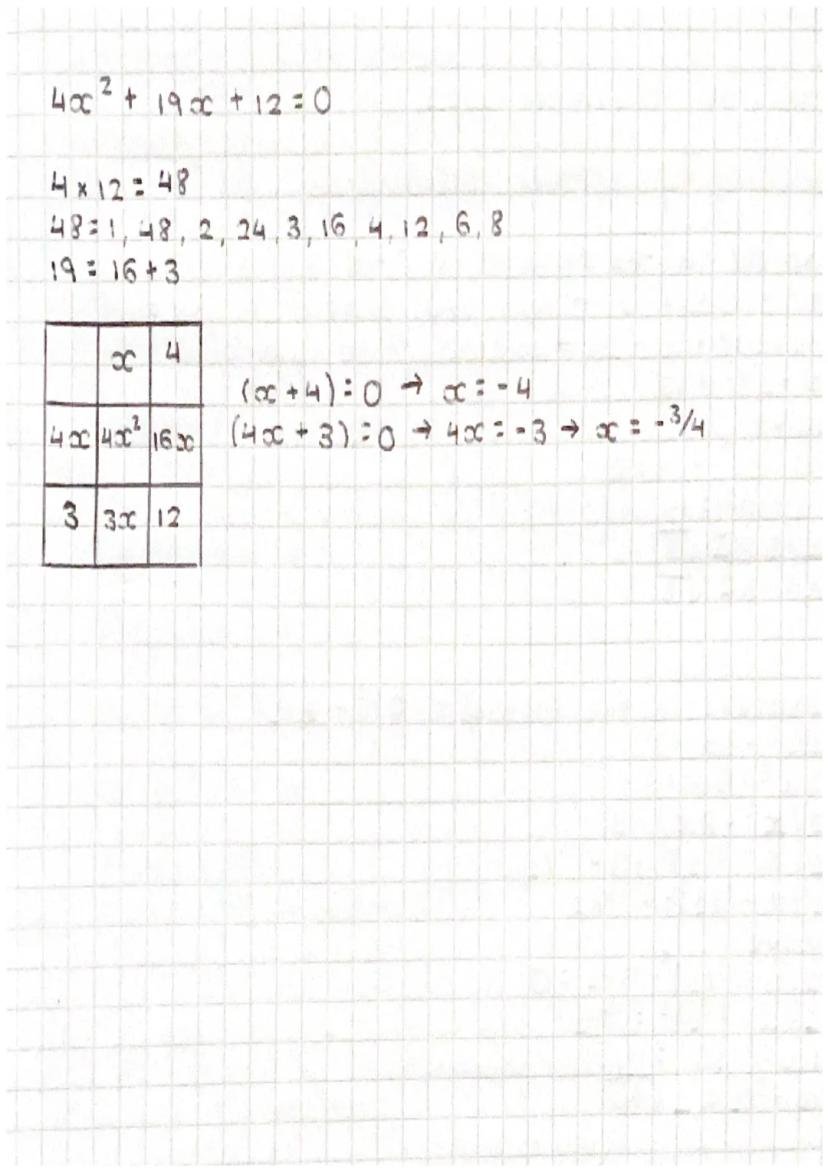 4x² + 19x + 12 = 0
4 × 12 = 48
48 = 1, 48, 2, 24, 3, 16, 4, 12, 6, 8
19 = 16 + 3
x 4
4x 4x² 16x
3 3x 12
(x + 4) = 0 → x = -4
(4x + 3) = 0 → 4x = -3 → x = -3/4